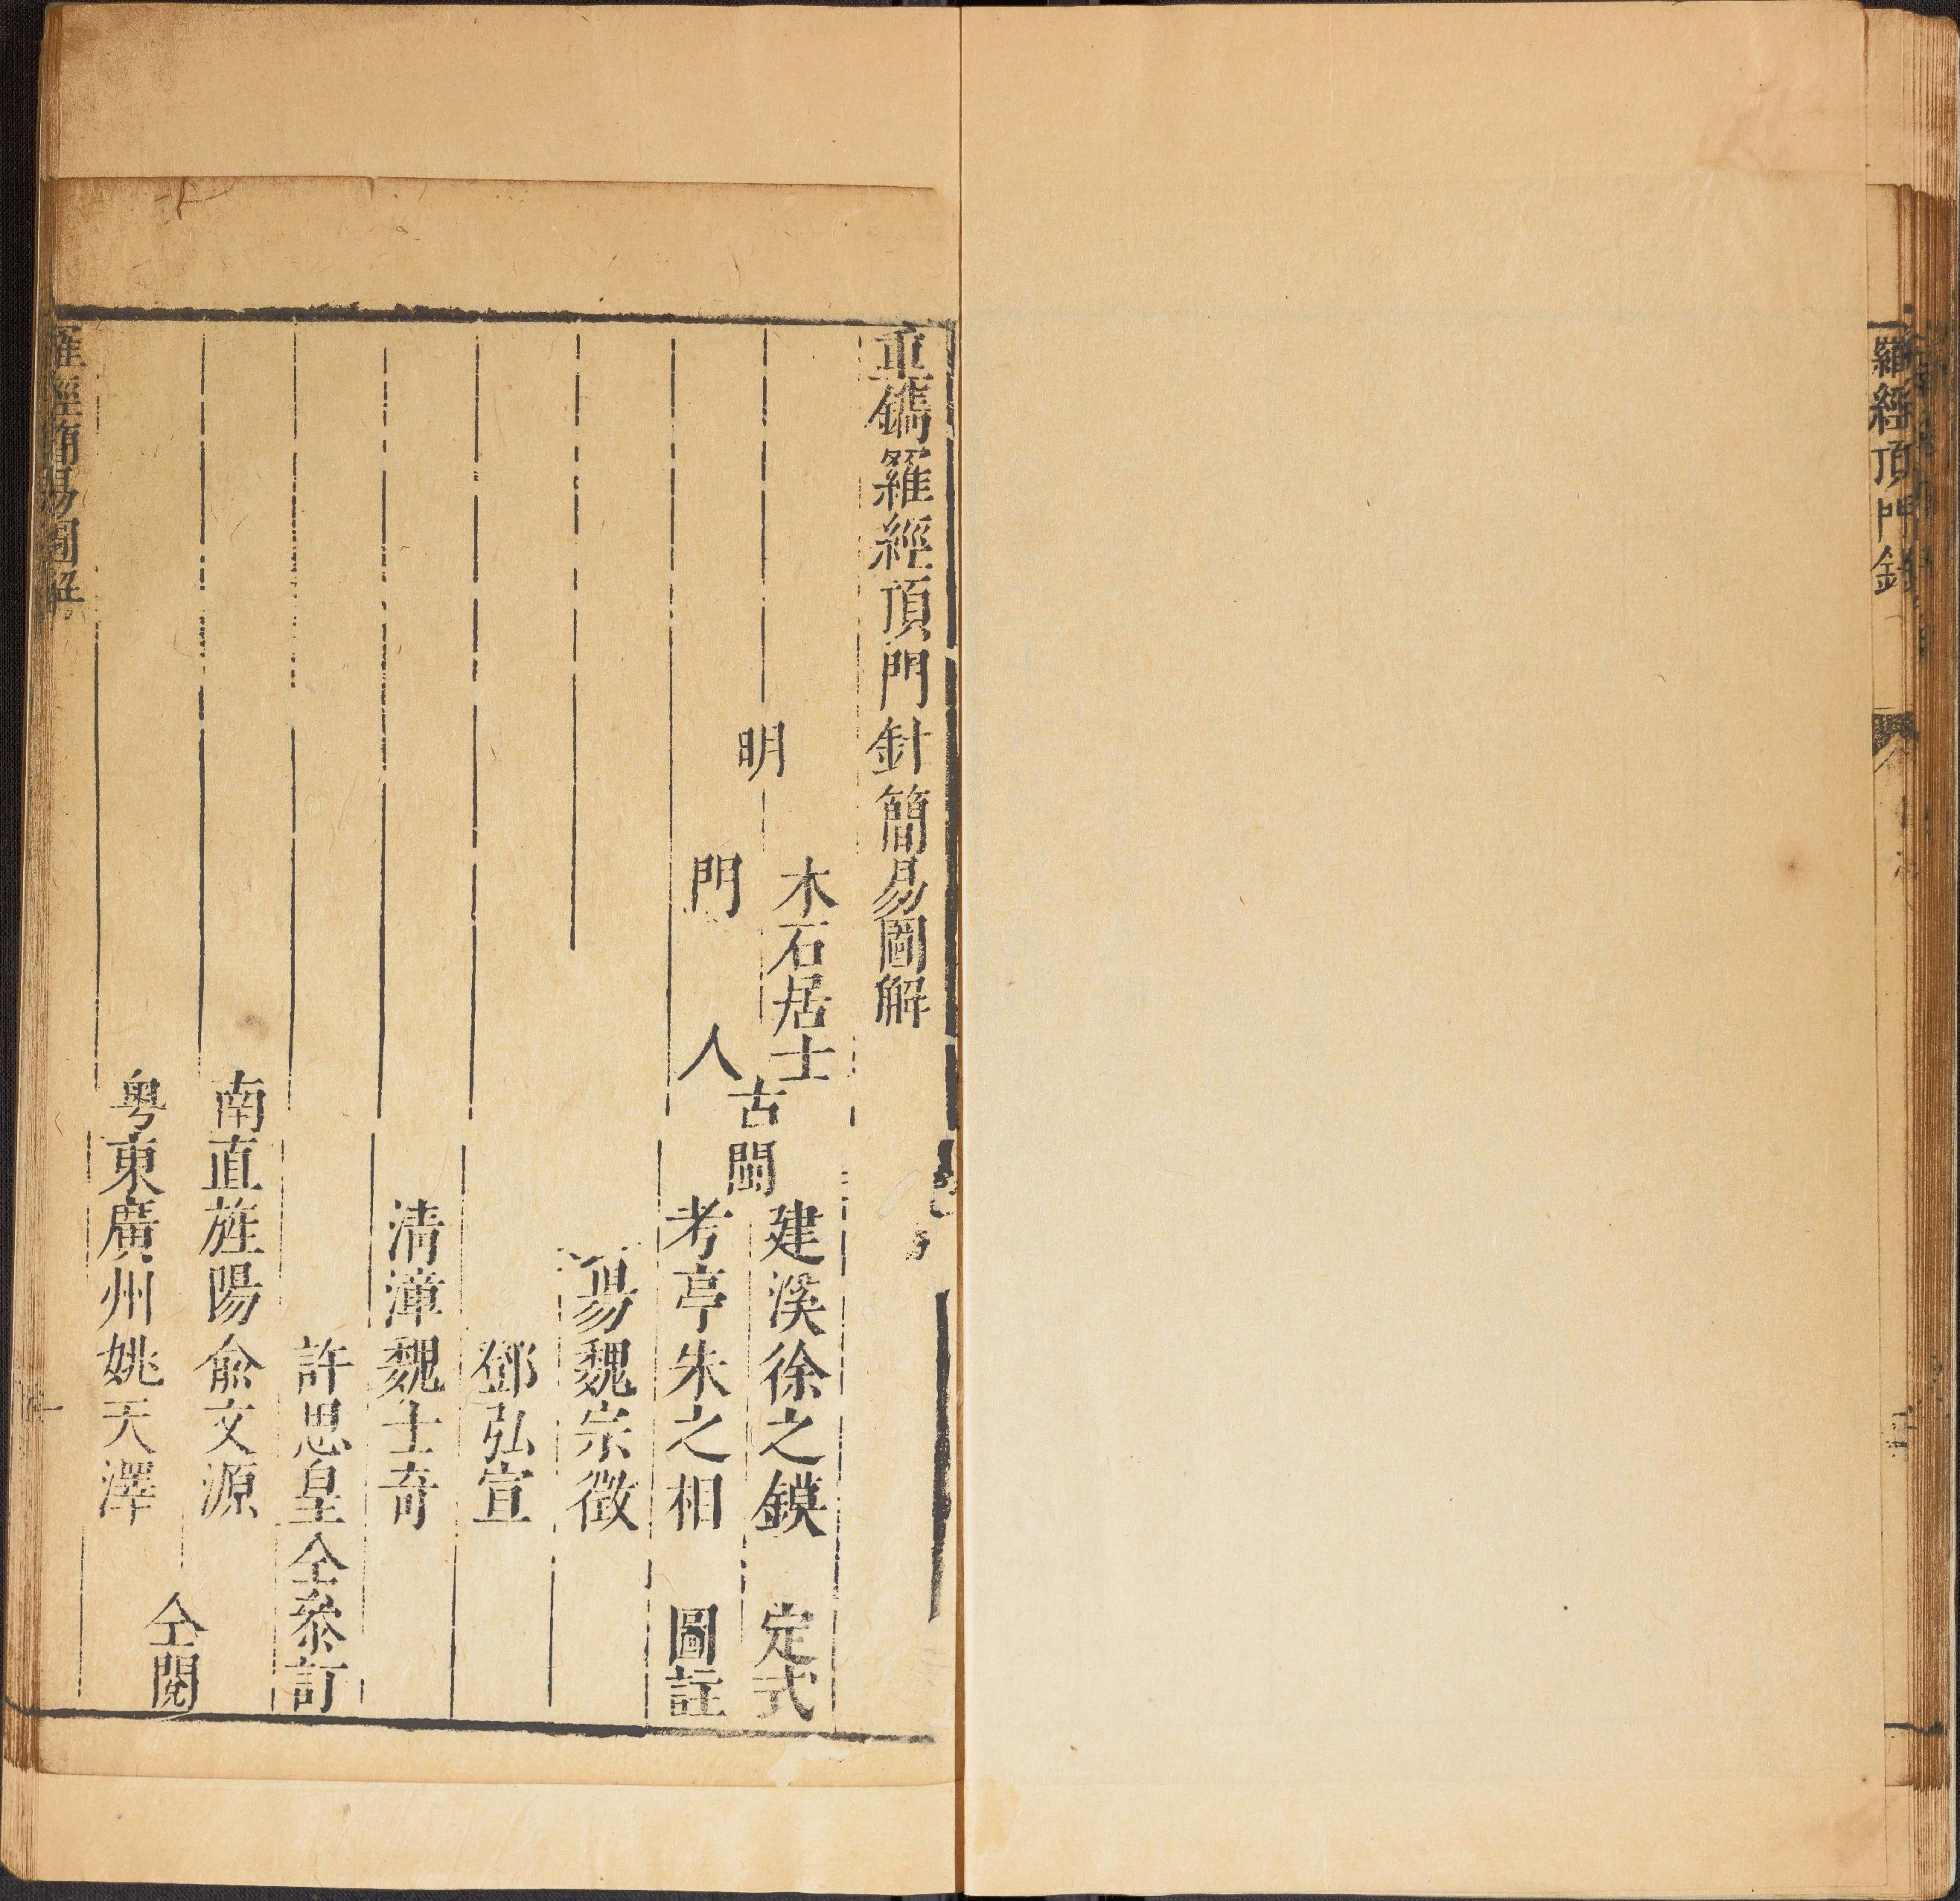 重鐫羅經頂門針簡易圖解
明
木石居士
門人
古閩
建溪徐之鏌 定式
考亭朱之相 圖註
昜魏宗徵
鄧弘宣
清漳魏士奇
許思皇仝叅訂
南直旌陽俞文源
粤東廣州姚天澤
仝閱
羅經簡易圖解
一
羅經頂門針